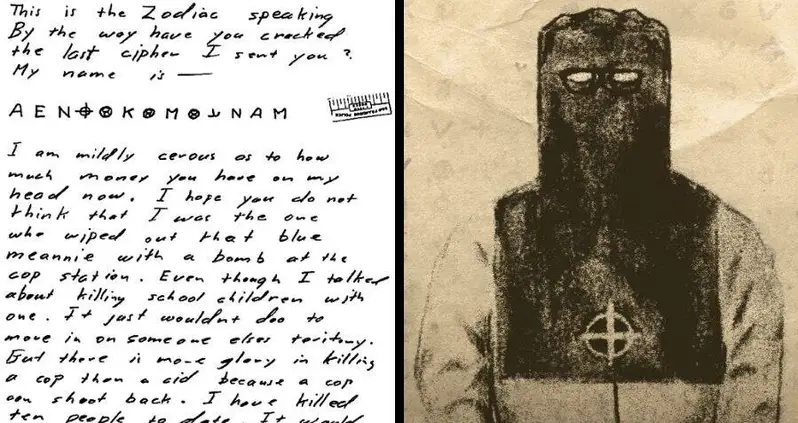 This is the Zodiac speaking
By the way have you cracked
the last cipher I sent you ?
My name is —
A E N ⊕ ⊗ K ⊗ M ⊗ ⅃ N A M
I am mildly cerous as to how
much money you have on my
head now. I hope you do not
think that I was the one
who wiped out that blue
meannie with a bomb at the
cop station. Even though I talked
about killing school children with
one. It just wouldnt doo to
move in on someone elses teritory.
But there is more glory in killing
a cop than a cid because a cop
can shoot back. I have killed
ten people to date. It would